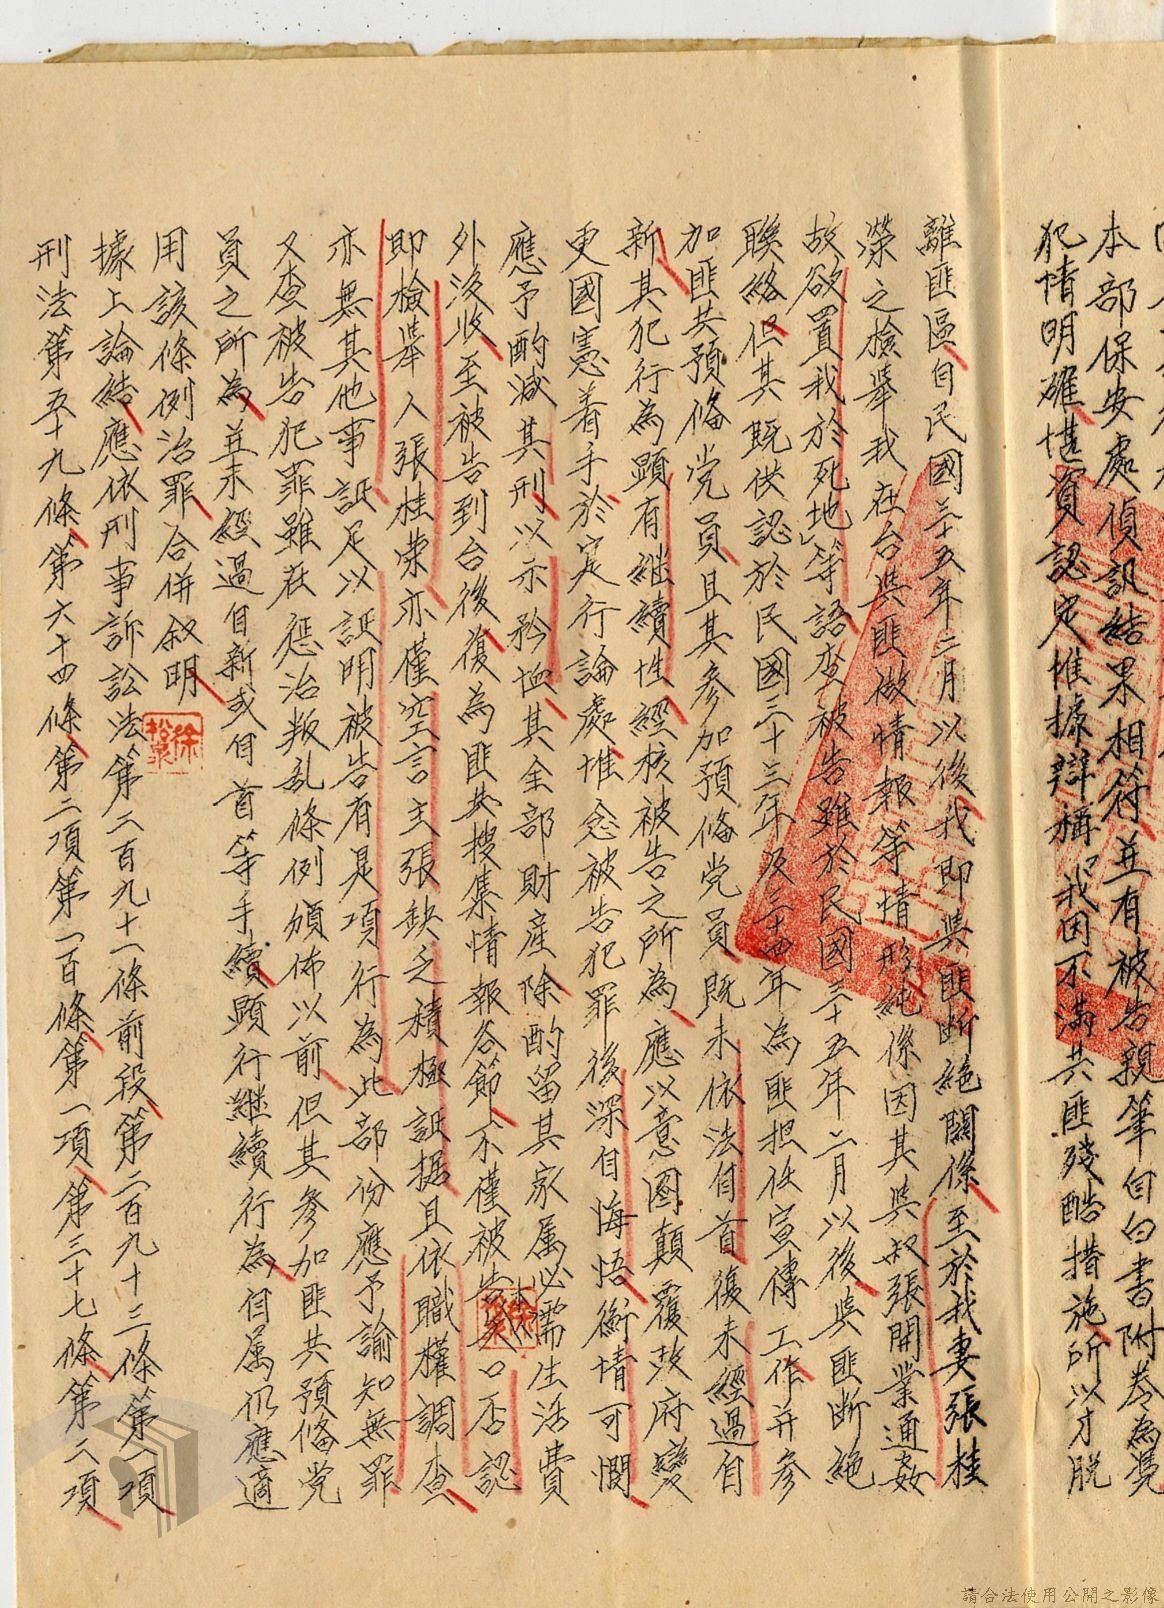 本部保安處偵訊結果相符並有被告親筆自白書附卷為憑
犯情明確堪資認定惟據辯稱「我因不滿共匪殘酷措施所以才脫
離匪區自民國三十五年二月以後我即與匪斷絕關係至於我妻張桂
榮之檢舉我在台與匪做情報等情形純係因其與叔張開業通姦
故欲置我於死地」等語查被告雖於民國三十五年二月以後與匪斷絕
聯絡但其既供認於民國三十三年及三十四年為匪担任宣傳工作并參
加匪共預備党員且其參加預備党員既未依法自首復未經過自
新其犯行為顯有継續性經核被告之所為應以意圖顛覆政府變
更國憲着手於实行論處惟念被告犯罪後深自悔悟衡情可憫
應予酌减其刑以示矜恤其全部財產除酌留其家属必需生活費
外沒收至被告到台後復為匪共搜集情報各節不僅被告矢口否認
即檢舉人張桂荣亦僅空言主張缺乏積極証据且依職權調查
亦無其他事証足以証明被告有是項行為此部份應予諭知無罪
又查被告犯罪雖在惩治叛乱條例頒佈以前但其參加匪共預備党
員之所為並未經過自新或自首等手續顕行継續行為自属仍應適
用該條例治罪合併叙明
徐松泉
據上論結應依刑事訴訟法第二百九十一條前段第二百九十三條第一項
刑法第五十九條第六十四條第二項第一百條第一項第三十七條第二項
請合法使用公開之影像